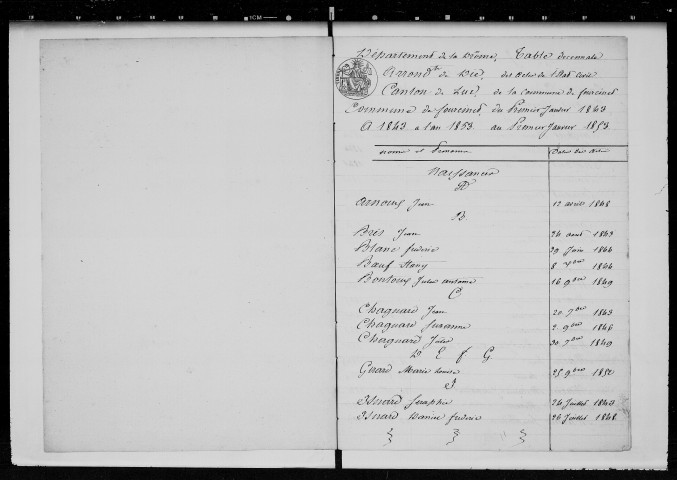 Département de la Drôme, Table décennale
Arrondt de Die, des Actes de l'Etat Civil
Canton de Luc, de la Commune de fourcinet
Commune de fourcinet, du Premier Janvier 1843
A 1843 a l'an 1853 au Premier Janvier 1853
noms et Prénoms Dates des Actes
Naissances
A
Arnoux Jean 12 avril 1848
B.
Brès Jean 24 août 1843
Blanc frederic 29 Juin 1844
Bœuf 8 1844
Bontoux Jules antoine 16 9bre 1849
C
Chaguard Jean 20 7bre 1843
Chaguard Suzanne 2 9bre 1846
Chaguard Jules 30 7bre 1849
D E f G.
Girard Marie louise 25 9bre 1852
I
Isnard Seraphie 24 Juillet 1843
Isnard frederic 26 Juillet 1848